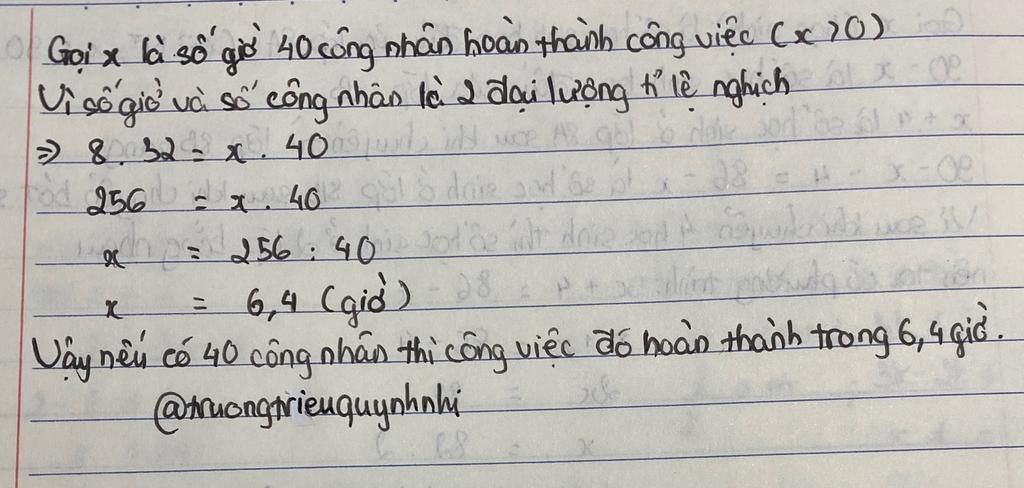 Gọi x là số giờ 40 công nhân hoàn thành công việc (x > 0)
Vì số giờ và số công nhân là 2 đại lượng tỉ lệ nghịch
⇒ 8 . 32 = x . 40
256 = x . 40
x = 256 : 40
x = 6,4 (giờ)
Vậy nếu có 40 công nhân thì công việc đó hoàn thành trong 6,4 giờ.
@truongtrieuquynhnhi